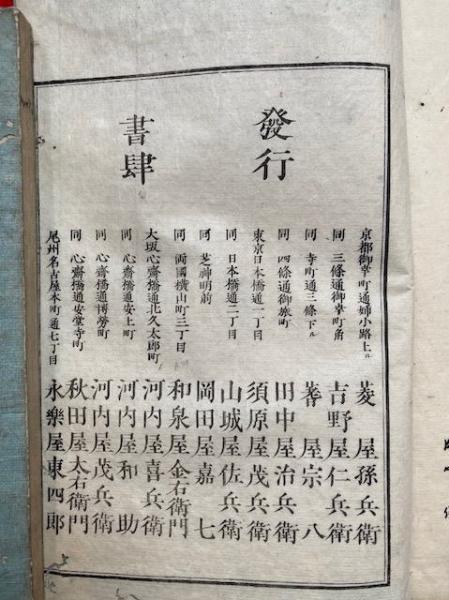 發行
書肆
京都御幸町通姉小路上ル 菱屋孫兵衛
同 三條通御幸町角 吉野屋仁兵衛
同 寺町通三條下ル 蓍屋宗八
同 四條通御旅町 田中屋治兵衛
東京日本橋通一丁目 須原屋茂兵衛
同 日本橋通二丁目 山城屋佐兵衛
同 芝神明前 岡田屋嘉七
同 両國横山町三丁目 和泉屋金右衛門
大坂心齋橋通北久太郎町 河内屋喜兵衛
同 心齋橋通安土町 河内屋和助
同 心齋橋通博勞町 河内屋茂兵衛
同 心齋橋通安堂寺町 秋田屋太右衛門
尾州名古屋本町通七丁目 永樂屋東四郎